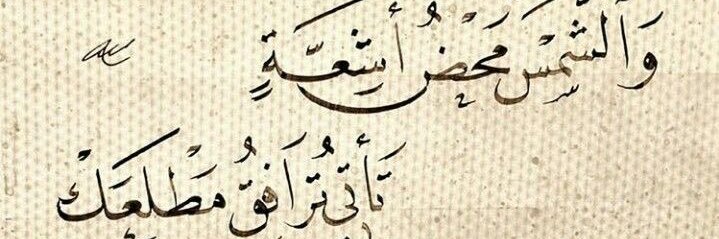 وَالشَّمْسُ مَحْضُ أَشِعَّةٍ
تَأْتِي تُرَافِقُ مَطْلَعَكْ